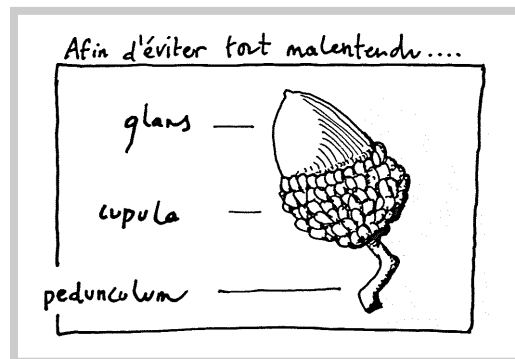 Afin d'éviter tout malentendu....
glans
cupula
pedunculum